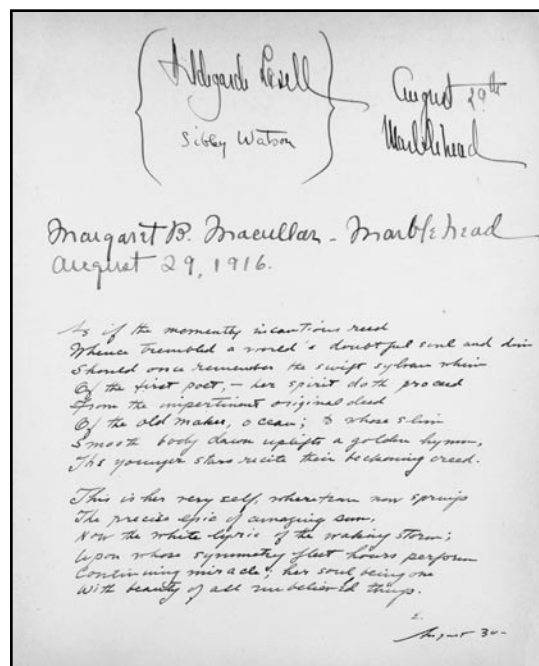 Hildegarde Lasell
Sibley Watson
August 29th
Marblehead
Margaret B. Macullar - Marblehead
August 29, 1916.
As if the momently incautious reed
Whence trembled a world's doubtful soul and dim
Should once remember the swift sylvan whim
Of the first poet, – her spirit doth proceed
From the impertinent original deed
Of the old maker, ocean; to whose slim
Smooth body dawn uplifts a golden hymn,
The younger stars recite their beckoning creed.
This is her very self, wherefrom now springs
The precise epic of amazing sun,
Now the white lyric of the waking storm;
Upon whose symmetry fleet hours perform
Continuing miracle; her soul being one
With beauty of all unbelieved things.
E.
August 30-